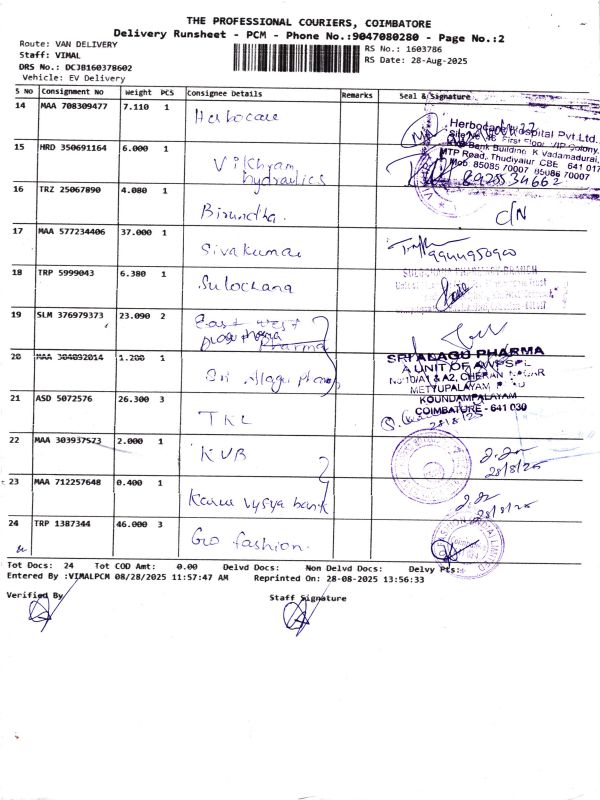 THE PROFESSIONAL COURIERS, COIMBATORE
Delivery Runsheet - PCM - Phone No.:9047080280 - Page No.:2
Route: VAN DELIVERY
RS No.: 1603786
Staff: VIMAL
RS Date: 28-Aug-2025
DRS No.: DCJB160378602
Vehicle: EV Delivery
S No Consignment No Weight PCS Consignee Details Remarks Seal & Signature
14 MAA 708309477 7.110 1 Herbocare
Herbodaya Hospital Pvt.Ltd.,
First Floor, VIP Colony,
Bank Building, K Vadamadurai,
MTP Road, Thudiyalur CBE 641 017
Mob: 85085 70007 85086 70007
15 HRD 350691164 6.000 1 Vikhram
hydraulics
8925534662
16 TRZ 25067890 4.080 1 Birundha.
C/N
17 MAA 577234406 37.000 1 Sivakumar
9944950900
18 TRP 5999043 6.380 1 Sulochana
19 SLM 376979373 23.090 2 East West
Pharma
20 MAA 304032014 1.200 1 Sri Alagu Pharma
SRI ALAGU PHARMA
A UNIT OF AWPSPL
No:10/A1 & A2, CHERAN NAGAR
METTUPALAYAM ROAD
KOUNDAMPALAYAM
COIMBATURE - 641 030
28/8/25
21 ASD 5072576 26.300 3 TKL
22 MAA 303937573 2.000 1 KVB
28/8/25
23 MAA 712257648 0.400 1 Karur vysya bank
28/8/25
24 TRP 1387344 46.000 3 Go fashion.
Tot Docs: 24 Tot COD Amt: 0.00 Delvd Docs: Non Delvd Docs: Delvy Pts:
Entered By :VIMALPCM 08/28/2025 11:57:47 AM Reprinted On: 28-08-2025 13:56:33
Verified By
Staff Signature